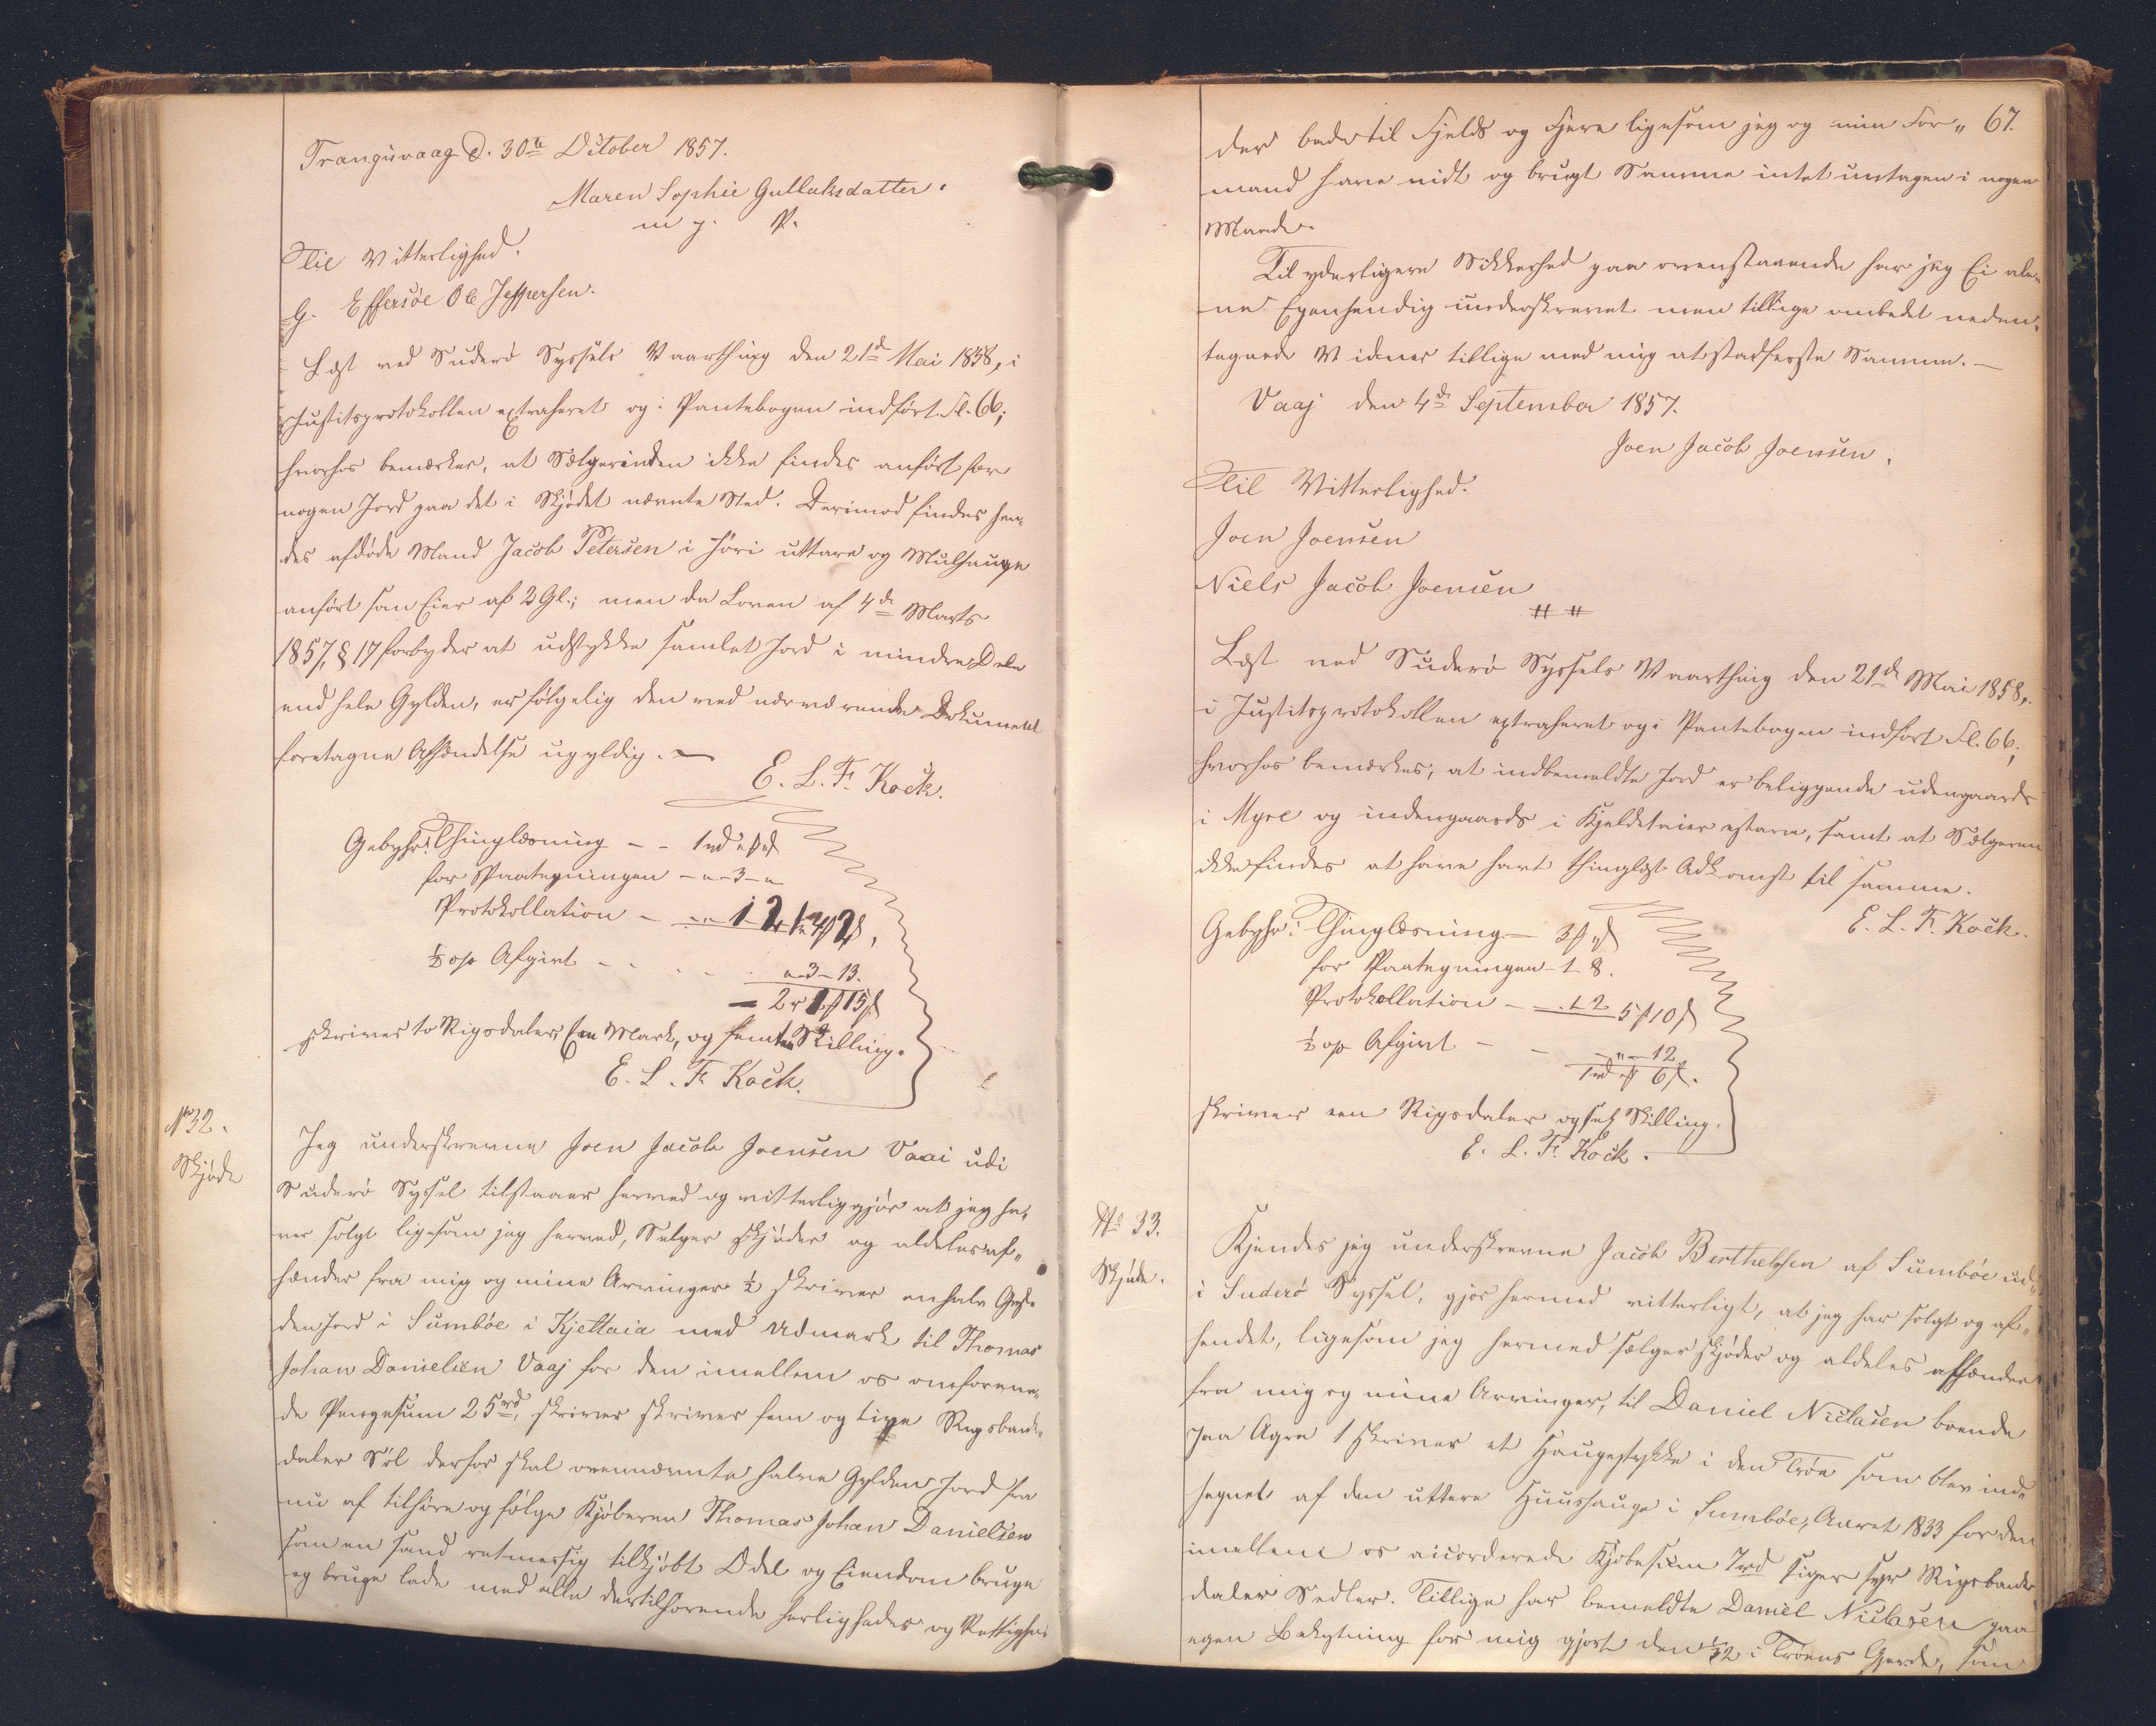 Trangisvaag d. 30te October 1857.
Maren Sophie Gullaksdatter.
m. p.
Til Vitterlighed.
G. Effersöe Ole Jespersen.
Læst ved Suderö Syssels Vaarthing den 21de Mai 1858, i
Justitsprotokollen extraheret og i Pantebogen indført Fl. 66;
hvorhos bemærkes, at Sælgerinden ikke findes anført for
nogen Jord paa det i Skjødet nævnte Sted. Derimod findes hen-
des afdøde Mand Jacob Petersen i Höri uttare og Mulhauge
anført som Eier af 2 Gl.; men da Loven af 4de Marts
1857, § 17 forbyder at udstykke samlet Jord i mindre Dele
end hele Gylden, er følgelig den ved nærværende Dokument
foretagne Afhændelse ugyldig. —
E. L. F. Kock.
Gebyhr: Thinglæsning - - 1 rd
for Paategningen - " - 3 - "
Protokollation -
½ op Afgivt - - - " - 3 - 13.
2 r 1 ß 15 ß
skriver to Rigsdaler, Een Mark, og femten Skilling.
E. L. F. Kock.
No 32.
Skjøde
Jeg underskrevne Joen Jacob Joensen Vaai udi
Suderö Syssel tilstaaer herved og vitterliggjør at jeg ha-
ver solgt ligesom jeg herved, Selger skjøder og aldeles af-
hænder fra mig og mine Arvinger ½ skriver en halv Gyl-
den Jord i Sumböe i Kjeltaia med Udmark til Thomas
Johan Danielsen Vaaj for den imellem os omforene-
de Pengesum 25 rd, skriver skriver fem og tive Rigsbank-
daler Söl derfor skal ovennævnte halve Gylden Jord fra
nu af tilhøre og følge Kjøberen Thomas Johan Danielsen
som en sand retmessig tilkjøbt Odel og Eiendom bruge
og bruge lade med alle dertilhørende herligheder og Rettighe-
67.
der bade til Fjelds og Fjere ligesom jeg og min For-
mand have nidt og brugt Samme intet untagen i nogen
Maade.
Til yderligere Sikkerhed paa ovenstaaende har jeg Ei ale-
ne Egenhendig underskrevet men tillige ombedet neden-
tegnede Vidner tillige med mig at stadfeste Samme. —
Vaaj den 4de September 1857.
Joen Jacob Joensen.
Til Vitterlighed.
Joen Joensen
Niels Jacob Joensen
Læst ved Suderö Syssels Vaarthing den 21de Mai 1858,
i Justitsprotokollen extraheret og i Pantebogen indført Fl. 66;
hvorhos bemærkes, at indbemeldte Jord er beliggende udengaards
i Myre og indengaards i Kjeldetaier estare, samt at Sælgeren
ikke findes at have havt thinglæst Adkomst til samme.
E. L. F. Kock.
Gebyhr: Thinglæsning - 3 ß
for Paategningen - 1 - 8.
Protokollation - 1 2 5 ß 10 ß
½ op Afgivt - - " - 12
1 rd " ß 6 ß.
skriver een Rigsdaler og sex Skilling.
E. L. F. Kock.
No 33.
Skjøde.
Kjendes jeg underskrevne Jacob Berthelsen af Sumböe ud-
i Suderö Syssel, gjør hermed vitterligt, at jeg har solgt og af-
hendet, ligesom jeg hermed sælger skjøder og aldeles afhænder
fra mig og mine Arvinger, til Daniel Niclasen boende
paa Agre 1 skriver et Haugestykke i den Tröe som blev ind-
hegnet af den uttere Huushauge i Sumböe, Aaret 1833 for den
imellem os accorderede Kjøbesum 7 rd siger syv Rigsbank-
daler Sedler. Tillige har bemeldte Daniel Niclasen paa
egen Bekostning for mig gjort den 1/32 i Tröens Gjerde, som